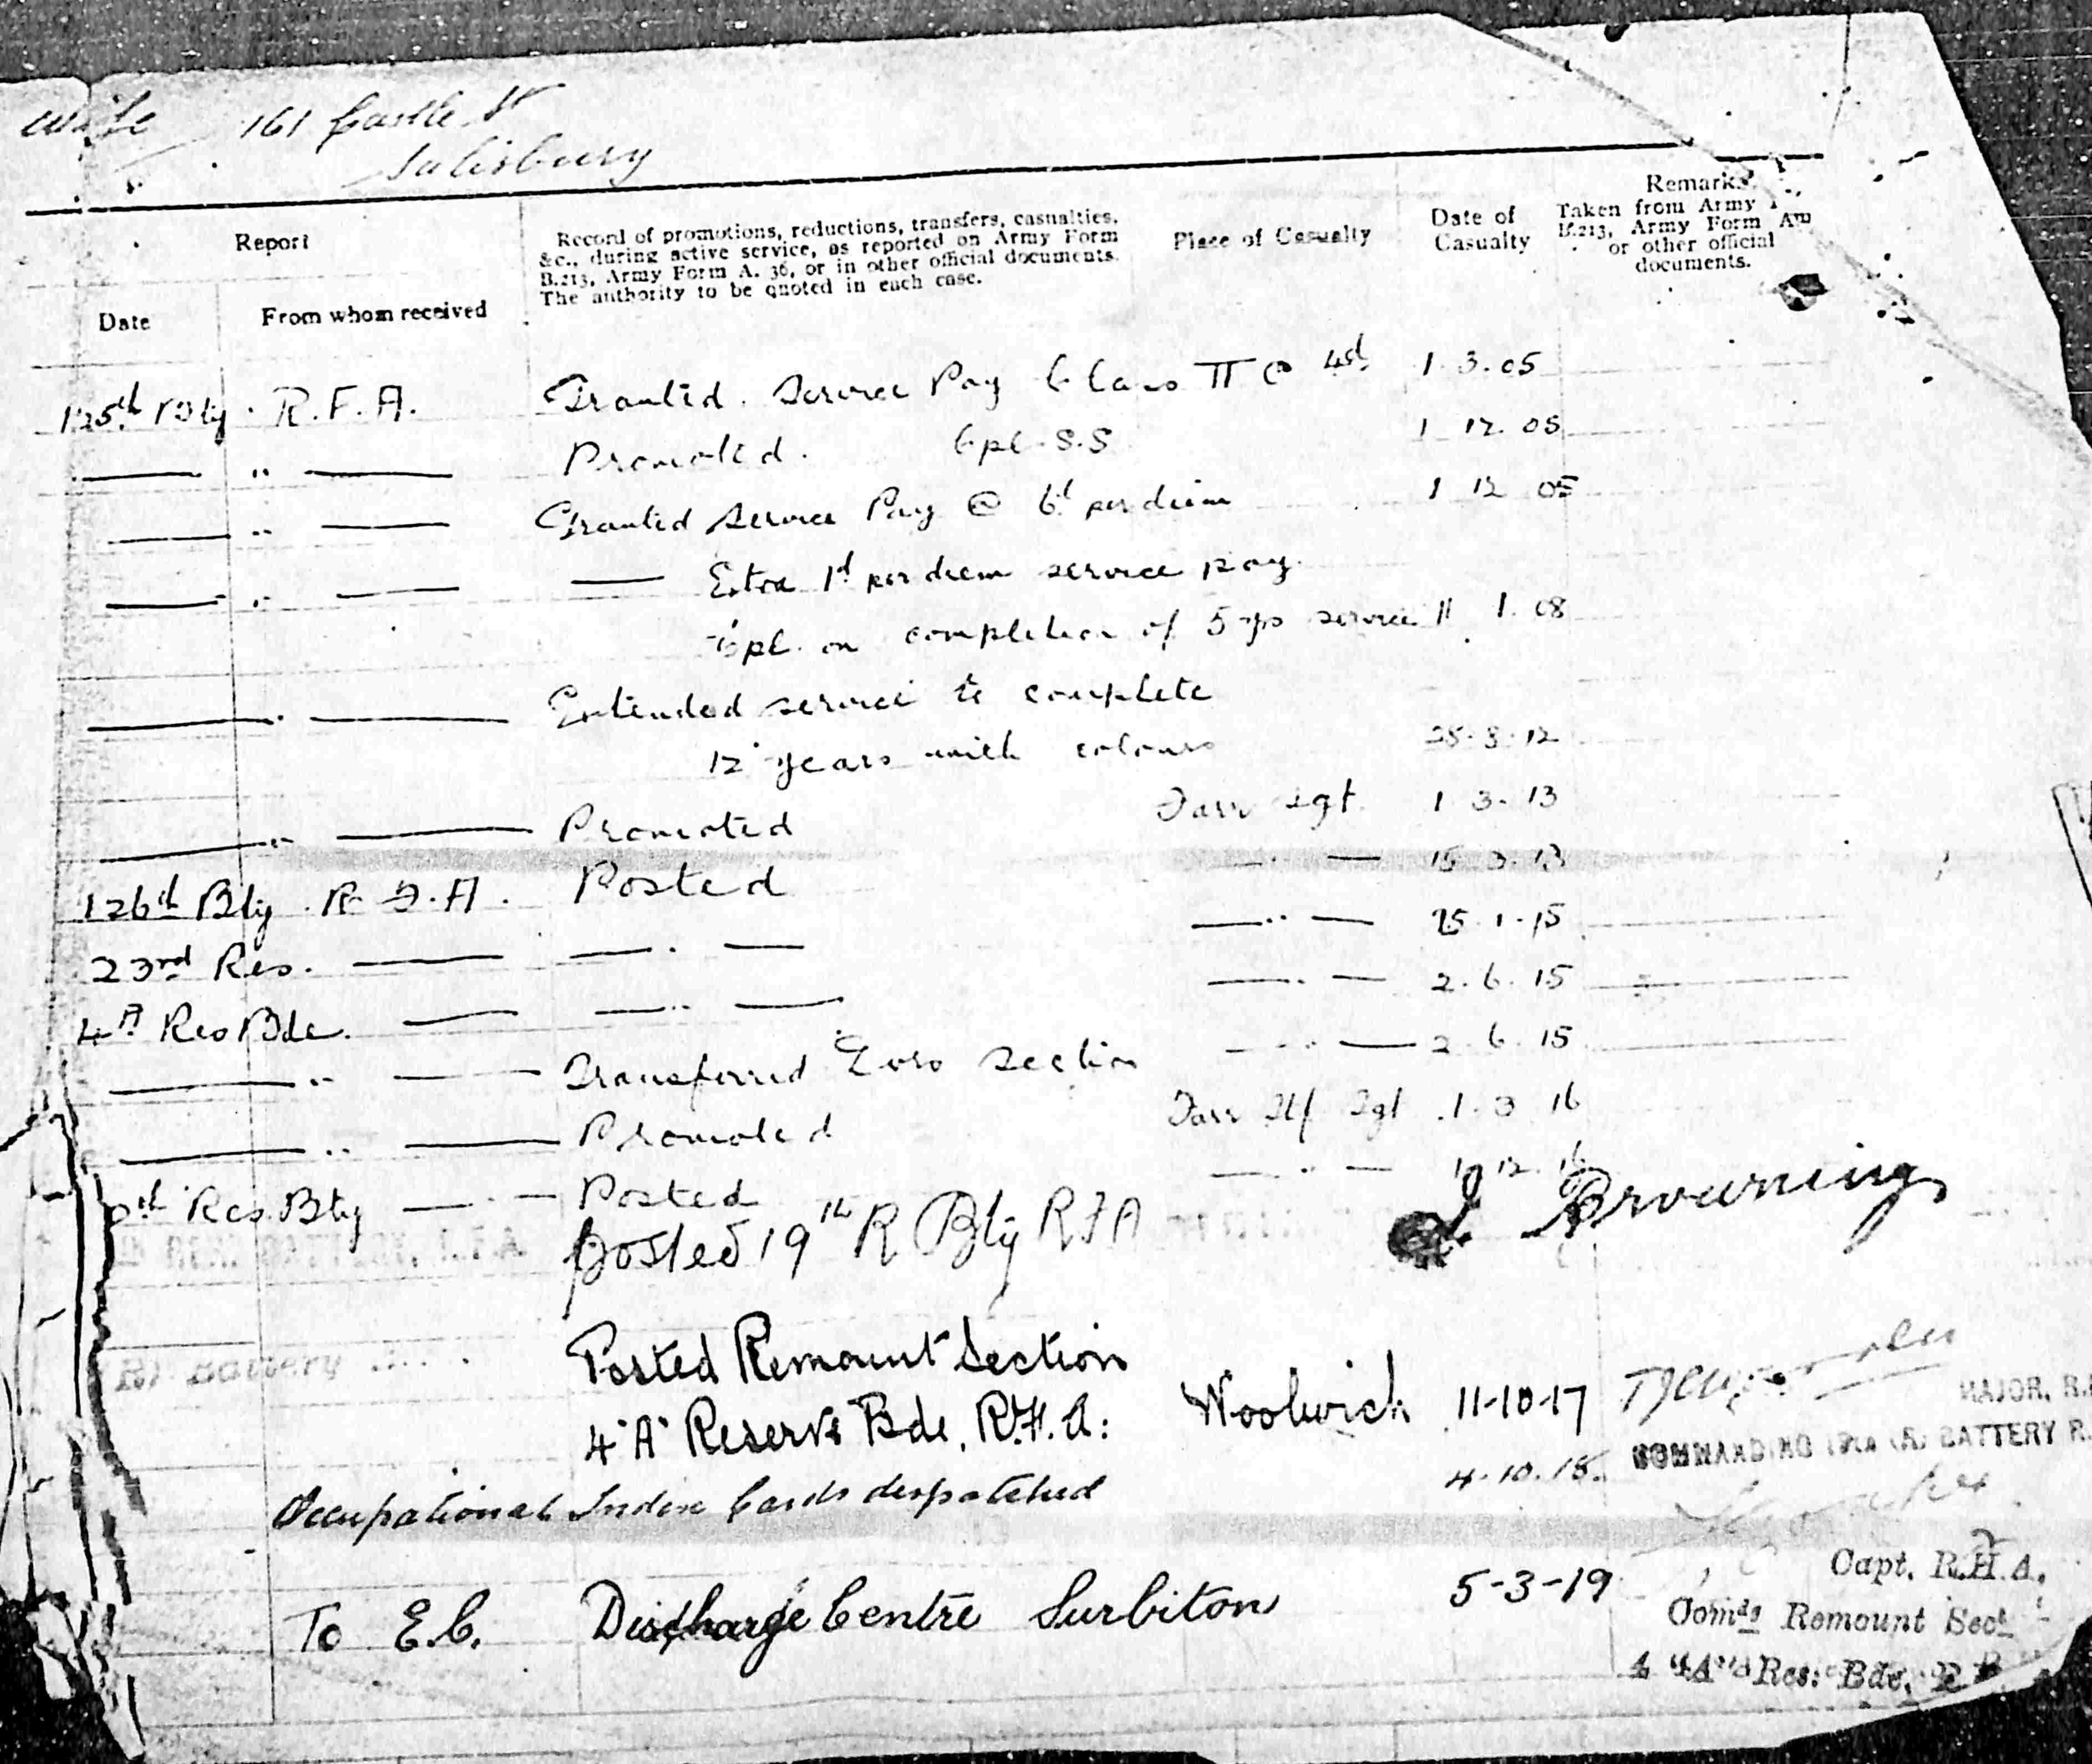 wife 161 Castle St
Salisbury
Report
Date
From whom received
Record of promotions, reductions, transfers, casualties,
&c., during active service, as reported on Army Form
B.213, Army Form A. 36, or in other official documents.
The authority to be quoted in each case.
Place of Casualty
Date of
Casualty
Remarks
Taken from Army
B.213, Army Form
or other official
documents.
125th Bty. R.F.A. Granted Service Pay Class II @ 4d 1.3.05
— " — Promoted. Cpl S.S 1 12. 05
— " — Granted Service Pay @ 6d per diem 1 12 05
— " — — Extra 1d per diem service pay.
Cpl. on completion of 5 yrs service 11 1. 08
— " — Extended service to complete
12 years with colours 28.8.12
— " — Promoted Farr Sgt. 1.3.13
126th Bty. R.F.A. Posted — " — 15.3.13
23rd Res. — — " — — " — 15.1.15
4A Res Bde. — — " — — " — 2.6.15
— " — Transferred Section — " — 2.6.15
— " — Promoted Farr Stf Sgt 1.3.16
Res. Bty — " — Posted — " —
posted 19th R Bty RFA
Browning
Battery
Posted Remount Section
4 "A" Reserve Bde. R.F.A. Woolwich 11-10-17
MAJOR, R.
COMMANDING (R) BATTERY R.
Occupational Index Cards despatched 4.10.18.
Capt. R.H.A.
To E.C. Discharge Centre Surbiton 5-3-19
Comdg Remount Sect
4 "A" Res: Bde. R